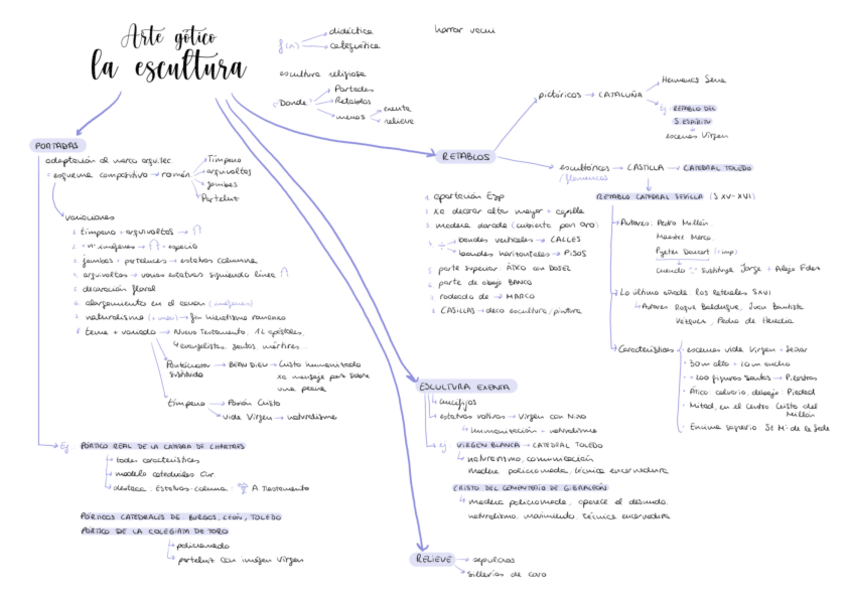 Arte gótico
la escultura
f(n)
didáctica
catequética
horror vacui
escultura religiosa
Donde
Portadas
Retablos
exenta
relieve
PORTADAS
adaptación al marco
esquema compositivo → román
Tímpano
arquivoltas
jambas
Parteluz
variaciones
1. tímpano + arquivoltas →
2. nº imágenes → + espacio
3. jambas + parteluces → estatuas columna
4. arquivoltas → varias estatuas siguiendo línea
5. decoración floral
6. alargamiento en el canon (imágenes)
7. naturalismo → fin hieratismo románico
8. tema + variado → Nuevo Testamento, 12 apóstoles,
4 evangelistas, santos, mártires...
Pantócrator sustituido → BEAU DIEU → Cristo humanizado
tímpano → Pasión Cristo
vida Virgen → naturalismo
Ej. PÓRTICO REAL DE LA CATEDRAL DE CHARTRES
todas características
modelo catedrales Eur.
destaca: Estatuas-columna: A. Testamento
PÓRTICOS CATEDRALES DE BURGOS, LEÓN, TOLEDO
PÓRTICO DE LA COLEGIATA DE TORO
policromado
parteluz con imagen Virgen
RETABLOS
pictóricos → CATALUÑA
Hermanos Serra
Ej. RETABLO DEL
S. ESPÍRITU
escenas Virgen
escultóricos → CASTILLA → CATEDRAL TOLEDO
/flamencos
1. aportación Esp
2. xa decorar altar mayor + capilla
3. madera dorada (cubierta pan oro)
4. bandas verticales → CALLES
bandas horizontales → PISOS
5. parte superior: ÁTICO con DOSEL
6. parte de abajo BANCO
7. rodeado de → MARCO
8. CASILLAS → deco escultura/pintura
RETABLO CATEDRAL SEVILLA (S XV-XVI)
Autores: Pedro Millán
Maestre Marco
Pyeter Dancart (imp)
cuando sustituye Jorge + Alejo Fdez
Lo último añade los laterales S XVI
Autores: Roque Balduque, Juan Bautista
Vázquez, Pedro de Heredia
Características
escenas vida Virgen + Jesús
30m alto + 20m ancho
200 figuras santos → Pilastras
Ático: calvario, debajo: Piedad
Mitad, en el centro Cristo del
Millón
Encima sagrario: Sta Mª de la Sede
ESCULTURA EXENTA
crucifijos
estatuas votivas → Virgen con Niño
humanización + naturalismo
ej VIRGEN BLANCA → CATEDRAL TOLEDO
naturalismo, comunicación
madera policromada, técnica encarnadura
CRISTO DEL CEMENTERIO DE GIBRALEÓN
madera policromada, aparece el desnudo
naturalismo, movimiento, técnica encarnadura
RELIEVE
sepulcros
sillerías de coro